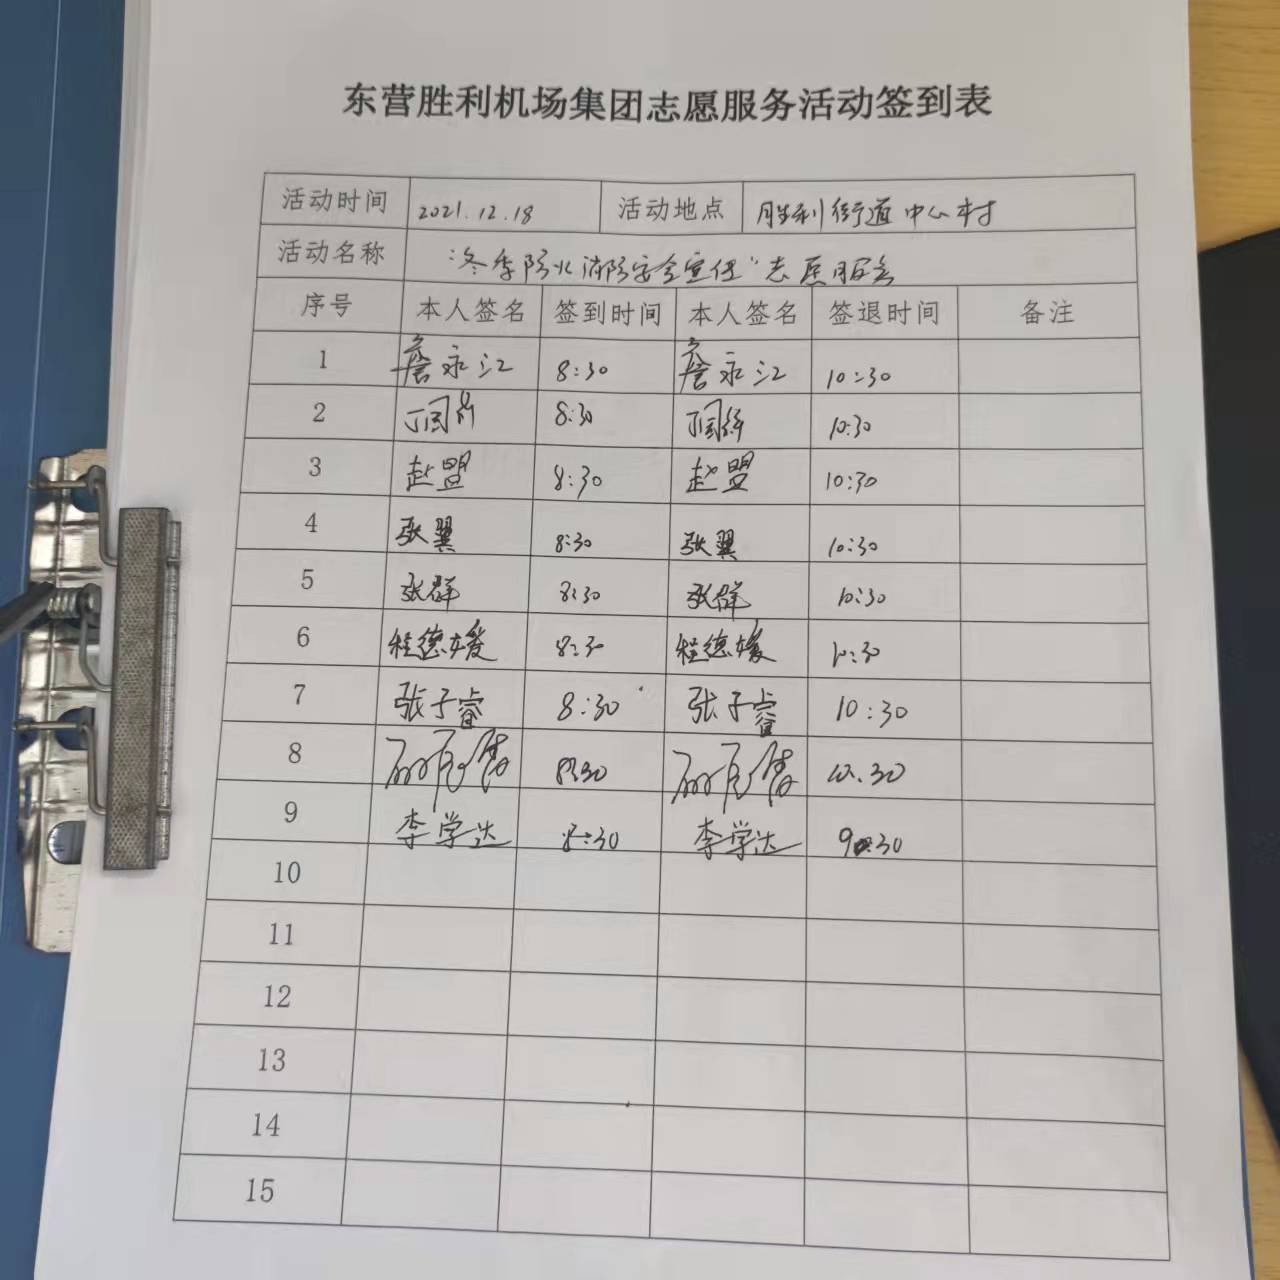 东营胜利机场集团志愿服务活动签到表
活动时间 2021.12.18 活动地点 胜利街道中心村
活动名称 "冬季防火消防安全宣传"志愿服务
序号 本人签名 签到时间 本人签名 签退时间 备注
1 詹永江 8:30 詹永江 10:30
2 8:30 10:30
3 赵盟 8:30 赵盟 10:30
4 张翼 8:30 张翼 10:30
5 张群 8:30 张群 10:30
6 程德媛 8:30 程德媛 10:30
7 张子睿 8:30 张子睿 10:30
8 8:30 10.30
9 李学达 8:30 李学达 9:30
10
11
12
13
14
15